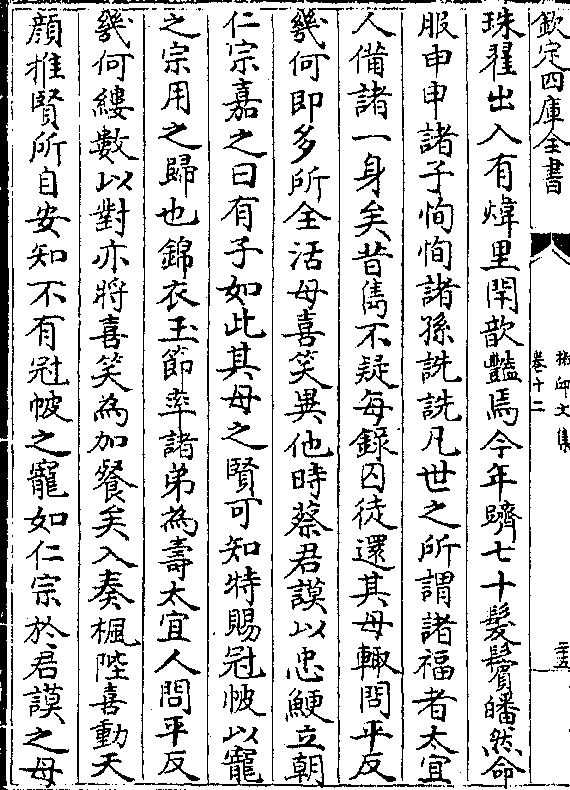 欽定四庫全書
卷十二
珠翟出入有煒里閈歆豔焉今年躋七十髮鬢皤然命
服申申諸子恂恂諸孫詵詵凡世之所謂諸福者太宜
人備諸一身矣昔雋不疑每錄囚徒還其母輙問平反
幾何即多所全活母喜笑異他時蔡君謨以忠鯁立朝
仁宗嘉之曰有子如此其母之賢可知特賜冠帔以寵
之宗用之歸也錦衣玉節率諸弟為壽太宜人問平反
幾何縷數以對亦將喜笑為加餐矣入奏楓陛喜動天
顔推賢所自安知不有冠帔之寵如仁宗於君謨之母